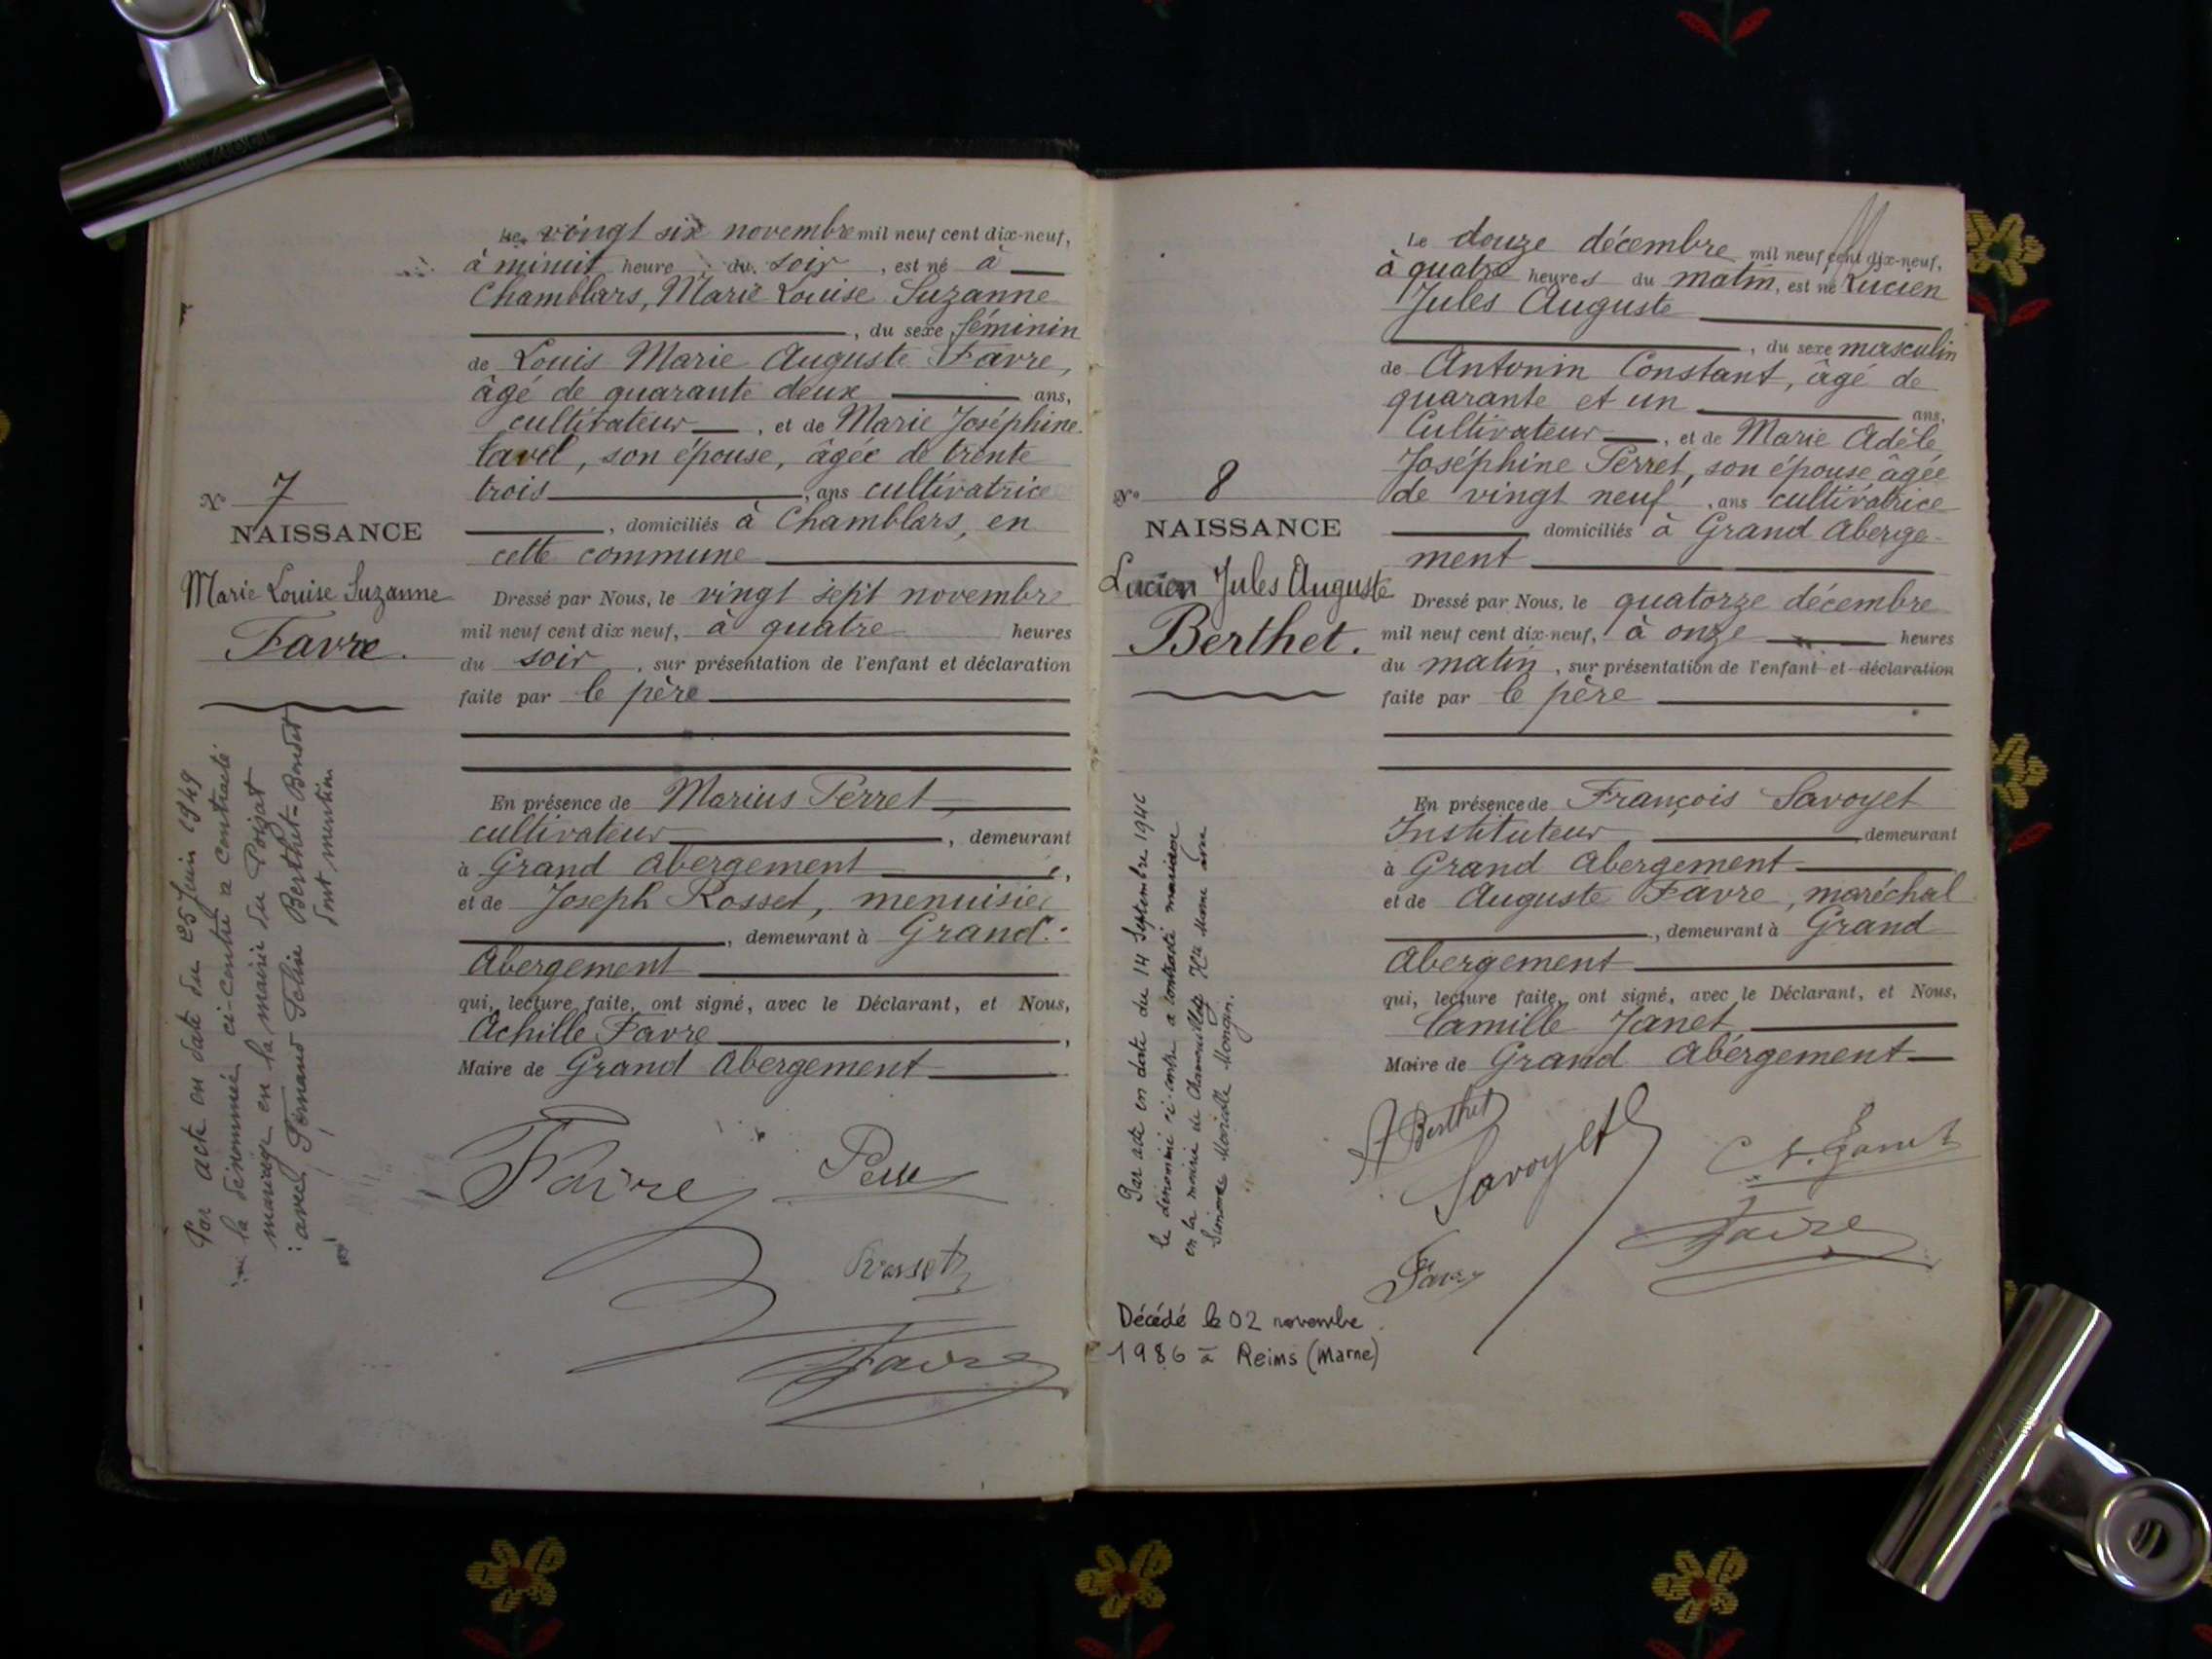 Le vingt six novembre mil neuf cent dix-neuf,
à minuit heure du soir, est né à
Chamblars, Marie Louise Suzanne
, du sexe féminin
de Louis Marie Auguste Favre,
âgé de quarante deux ans,
cultivateur, et de Marie Joséphine
Cavel, son épouse, âgée de trente
trois, ans cultivatrice
, domiciliés à Chamblars, en
cette commune
No 7
NAISSANCE
Marie Louise Suzanne
Favre.
Dressé par Nous, le vingt sept novembre
mil neuf cent dix neuf, à quatre heures
du soir, sur présentation de l'enfant et déclaration
faite par le père
En présence de Marius Perret,
cultivateur, demeurant
à Grand Abergement,
et de Joseph Rosset, menuisier
, demeurant à Grand
Abergement
qui, lecture faite, ont signé, avec le Déclarant, et Nous,
Achille Favre,
Maire de Grand Abergement
Par acte en date du 25 Juin 1949
la dénommée ci-contre a contracté
mariage en la mairie du Poizat
avec Fernand Félix Berthet-Bondet
dont mention
Favre
Rosset
Favre
Le douze décembre mil neuf cent dix-neuf,
à quatre heures du matin, est né Lucien
Jules Auguste
, du sexe masculin
de Antonin Constant, âgé de
quarante et un ans,
Cultivateur, et de Marie Adèle
Joséphine Perret, son épouse âgée
de vingt neuf, ans cultivatrice
domiciliés à Grand Aberge-
ment
No 8
NAISSANCE
Lucien Jules Auguste
Berthet.
Dressé par Nous, le quatorze décembre
mil neuf cent dix-neuf, à onze heures
du matin, sur présentation de l'enfant et déclaration
faite par le père
En présence de François Savoyet
Instituteur demeurant
à Grand Abergement
et de Auguste Favre, maréchal
, demeurant à Grand
Abergement
qui, lecture faite, ont signé, avec le Déclarant, et Nous,
Camille Janet
Maire de Grand Abergement
Par acte en date du 14 Septembre 1946
le dénommé ci-contre a contracté
en la mairie de Hte Marne avec
Simone Mongin.
A Berthet
Savoyet
Janet
Favre
Favre
Décédé le 02 novembre
1986 à Reims (Marne)